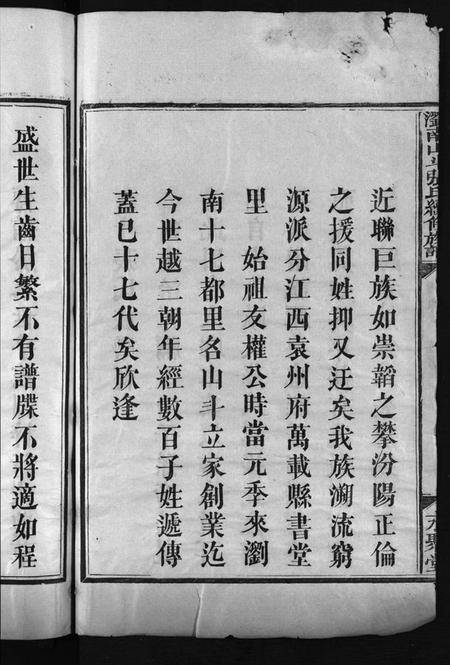 近聯巨族如崇韜之攀汾陽正倫
之援同姓抑又迂矣我族溯流窮
源派分江西袁州府萬載縣書堂
里 始祖友權公時當元季來瀏
南十七都里名山斗立家創業迄
今世越三朝年經數百子姓遞傳
蓋已十七代矣欣逢
盛世生齒日繁不有譜牒不將適如程
瀏南山斗張氏續修族譜
永聚堂